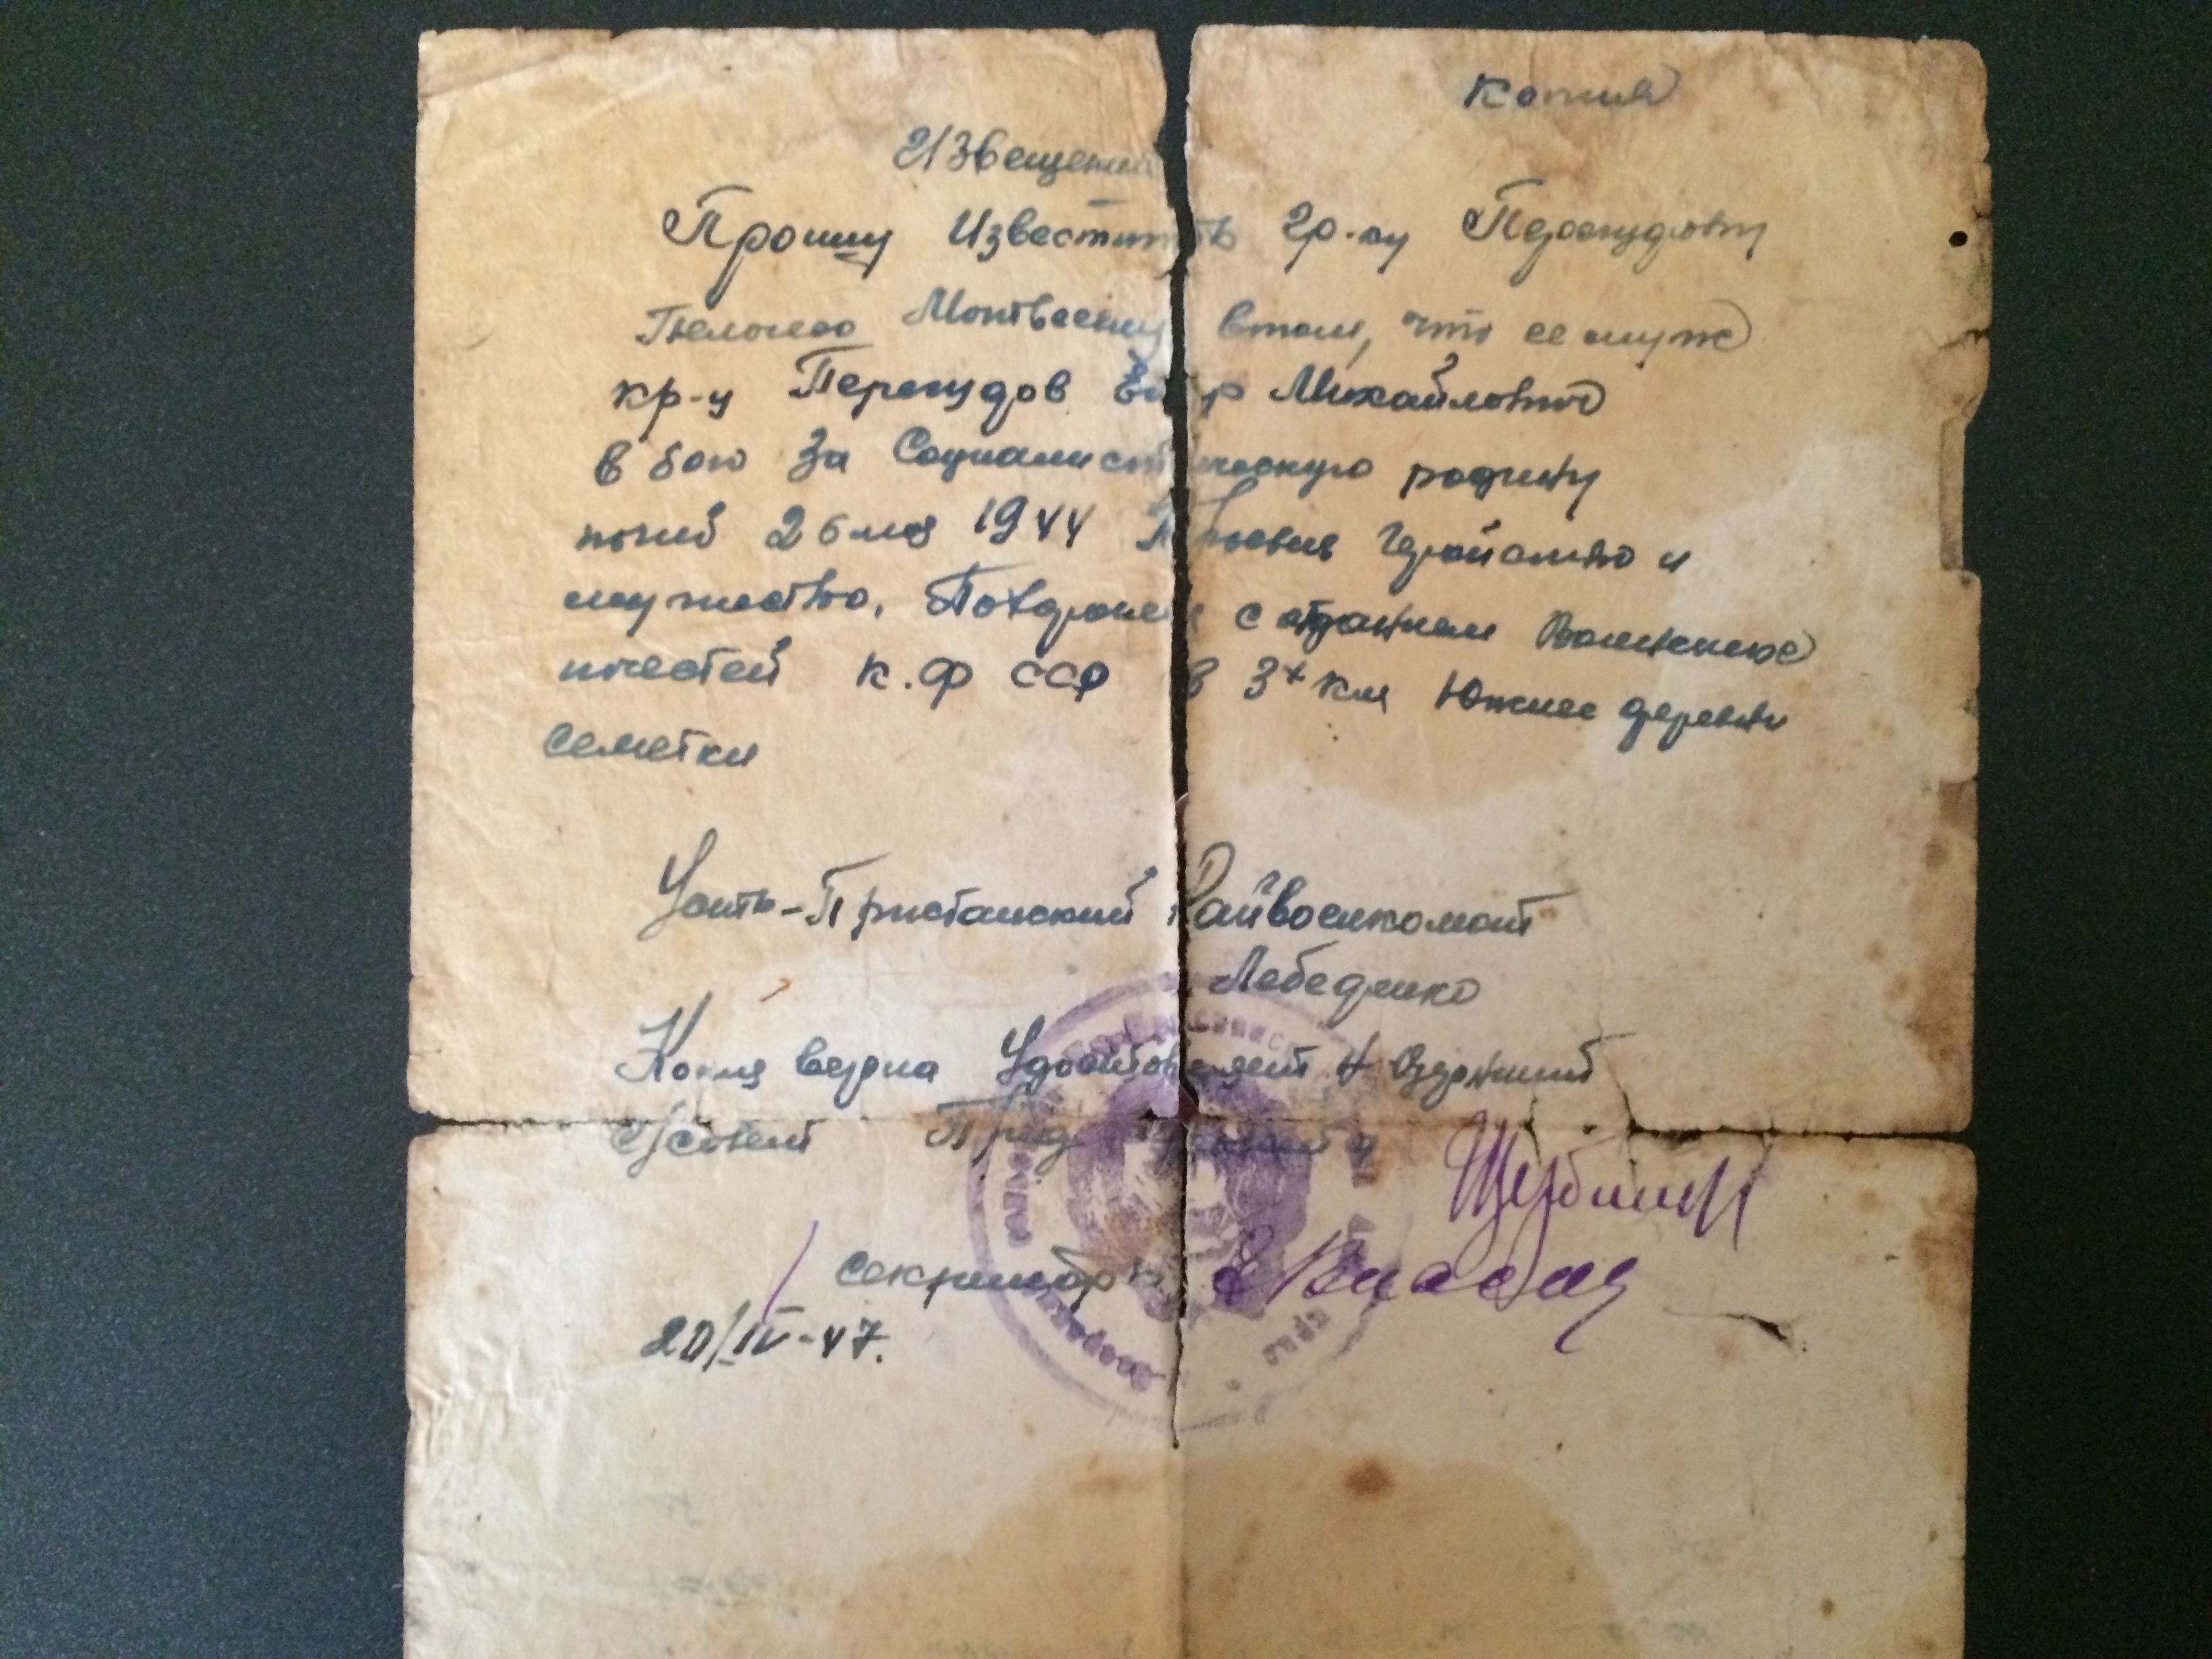 Копия
Извещение
Прошу Известить гр-ку Перегудову
Матвеевну в том, что ее муж
кр-ц Перегудов Егор Михайлович
в бою за Социалистическую родину
погиб 26 мая 1944 Проявив Геройство и
мужество. Похоронен с отданием Воинских
почестей К.Ф ССР в 3х км Южнее деревни
Семетки
Усть-Пристанский Райвоенкомат
Лебеденко
Копия верна Удостоверяет Н Озернинский
с/совет Пред
Щербинин
секретарь
20/IV-47.